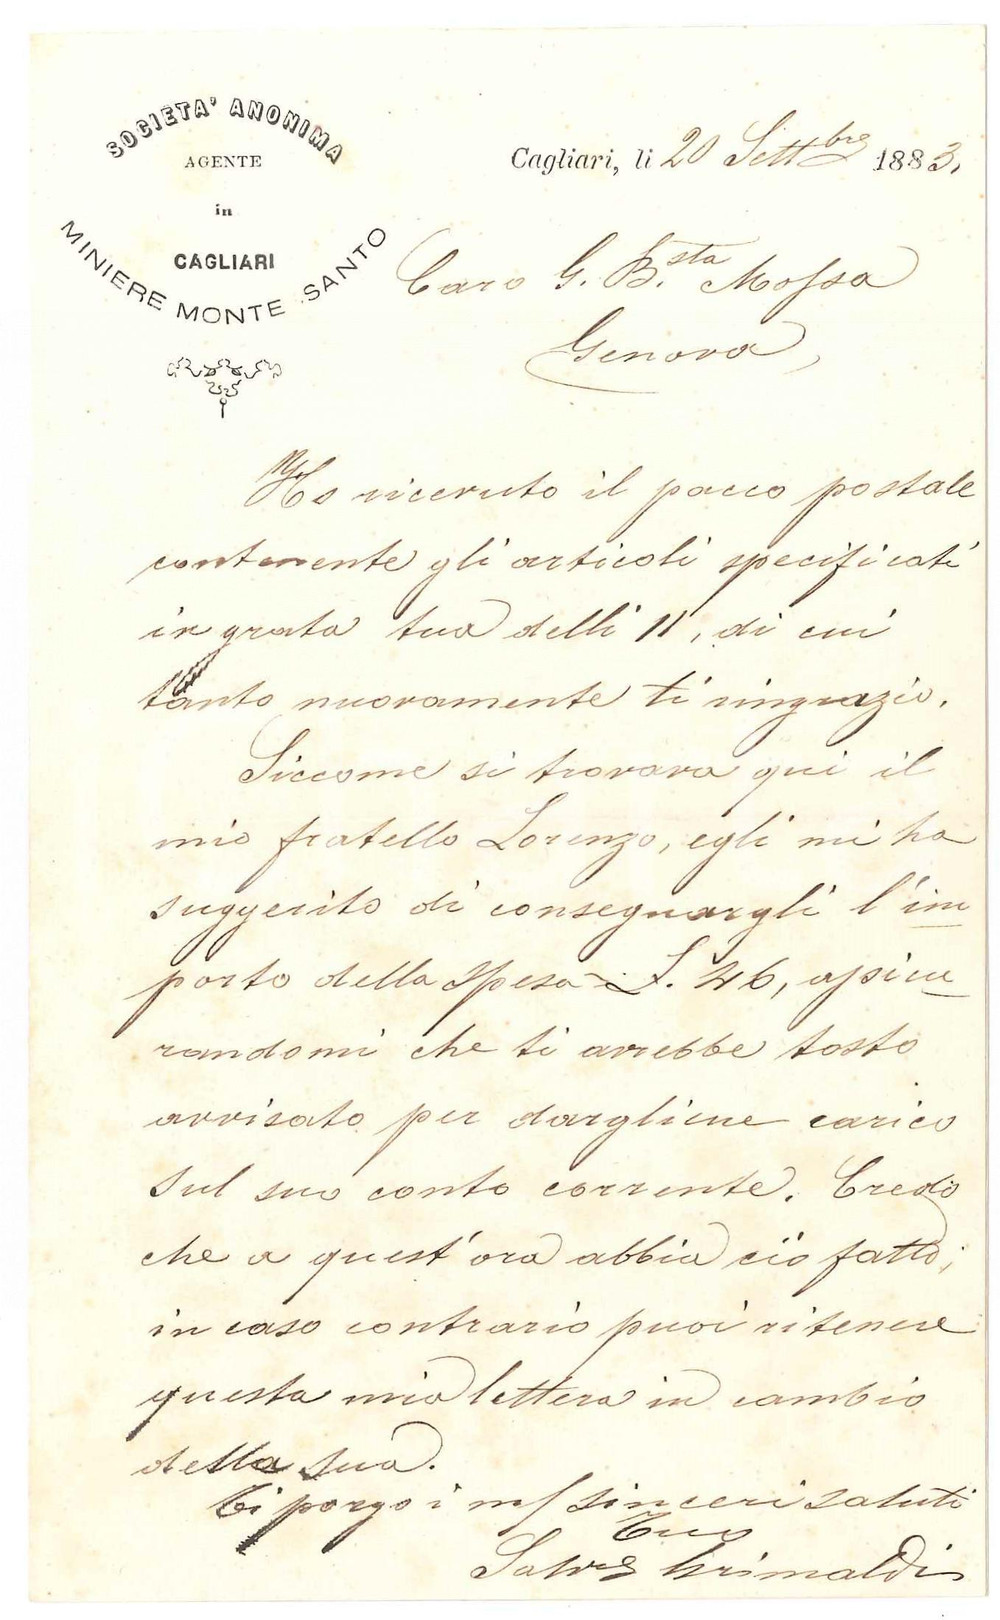 SOCIETA' ANONIMA
AGENTE
in
CAGLIARI
MINIERE MONTE SANTO
Cagliari, li 20 Settbre 1883.
Caro G. Bsta Mossa
Genova
Ho ricevuto il pacco postale
contenente gli articoli specificati
in grata tua delli 11, di cui
tanto nuovamente ti ringrazio.
Siccome si trovava qui il
mio fratello Lorenzo, egli mi ha
suggerito di consegnargli l'im
porto della spesa L. 46, assicu
randomi che ti avrebbe tosto
avvisato per dargliene carico
sul suo conto corrente. Credo
che a quest'ora abbia ciò fatto;
in caso contrario puoi ritenere
questa mia lettera in cambio
della sua.
Ti porgo i m/ sinceri saluti
Tuo
Salvre Grimaldi